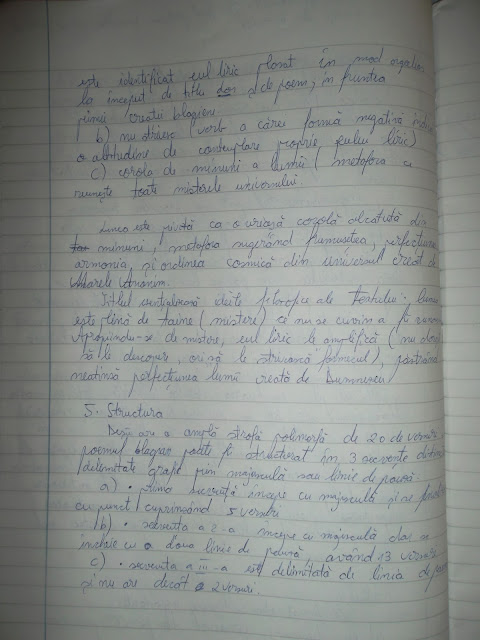 este identificat eul liric plasat în mod orgolios
la început de titlu și de poem, în fruntea
primei creații blagiene.
b) nu strivesc (verb a cărei formă negativă indică
o atitudine de contemplare proprie eului liric)
c) corola de minuni a lumii (metafora ce
reunește toate misterele universului.
Lumea este privită ca o uriașă corolă alcătuită din
minuni, metafora sugerând frumusețea, perfecțiunea
armonia, și ordinea cosmică din universul creat de
Marele Anonim.
Titlul sintetizează ideile filozofice ale textului: lumea
este plină de taine (mistere) ce nu se cuvin a fi
Apropiindu-se de mistere, eul liric le amplifică (nu dorește
să le descopere, ori să le strivească farmecul), păstrând
neatinsă perfecțiunea lumii creată de Dumnezeu
5. Structura
Deși are o amplă strofă polimorfă de 20 de versuri
poemul blagian poate fi structurat în 3 secvențe distincte
delimitate grafic prin majusculă sau linie de pauză
a) • prima secvență începe cu majusculă și se
cu punct cuprinzând 5 versuri
b) • secvența a 2-a începe cu majusculă dar se
încheie cu a doua linie de pauză, având 13 versuri
c) • secvența a III-a este delimitată de linia de pauză
și nu are decât 2 versuri.